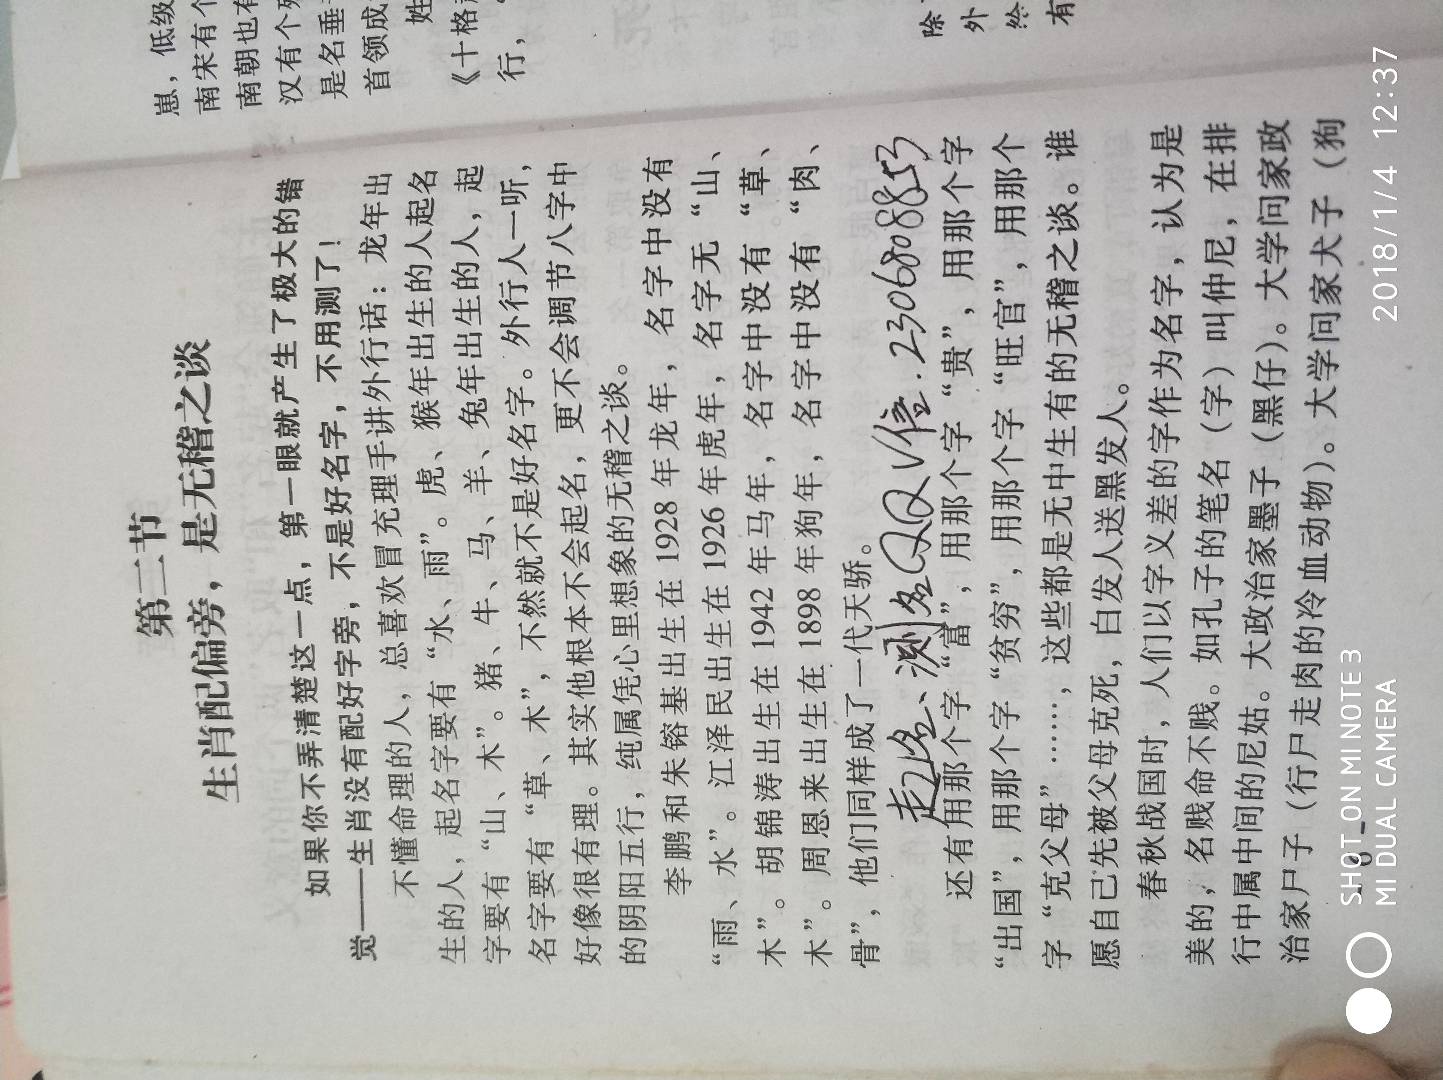 第二节
生肖配偏旁，是无稽之谈
如果你不弄清楚这一点，第一眼就产生了极大的错
觉——生肖没有配好字旁，不是好名字，不用测了！
不懂命理的人，总喜欢冒充理手讲外行话：龙年出
生的人，起名字要有“水、雨”。虎、猴年出生的人起名
字要有“山、木”。猪、牛、马、羊、兔年出生的人，起
名字要有“草、木”，不然就不是好名字。外行人一听，
好像很有理。其实他根本不会起名，更不会调节八字中
的阴阳五行，纯属凭心里想象的无稽之谈。
李鹏和朱镕基出生在 1928 年龙年，名字中没有
“雨、水”。江泽民出生在 1926 年虎年，名字无“山、
木”。胡锦涛出生在 1942 年马年，名字中没有“草、
木”。周恩来出生在 1898 年狗年，名字中没有“肉、
骨”，他们同样成了一代天骄。
起名、测名QQV信.2306808853
还有用那个字“富”，用那个字“贵”，用那个字
“出国”，用那个字“贫穷”，用那个字“旺官”，用那个
字“克父母”……，这些都是无中生有的无稽之谈。谁
愿自己先被父母克死，白发人送黑发人。
春秋战国时，人们以字义差的字作为名字，认为是
美的，名贱命不贱。如孔子的笔名（字）叫仲尼，在排
行中属中间的尼姑。大政治家墨子（黑仔）。大学问家政
治家尸子（行尸走肉的冷血动物）。大学问家犬子（狗
- 6 -
崽，低级
南宋有个
南朝也有
汉有个
是名垂
首领成
姓
《十格
行，
除
外
绘
有
SHOT ON MI NOTE 3
MI DUAL CAMERA
2018/1/4 12:37